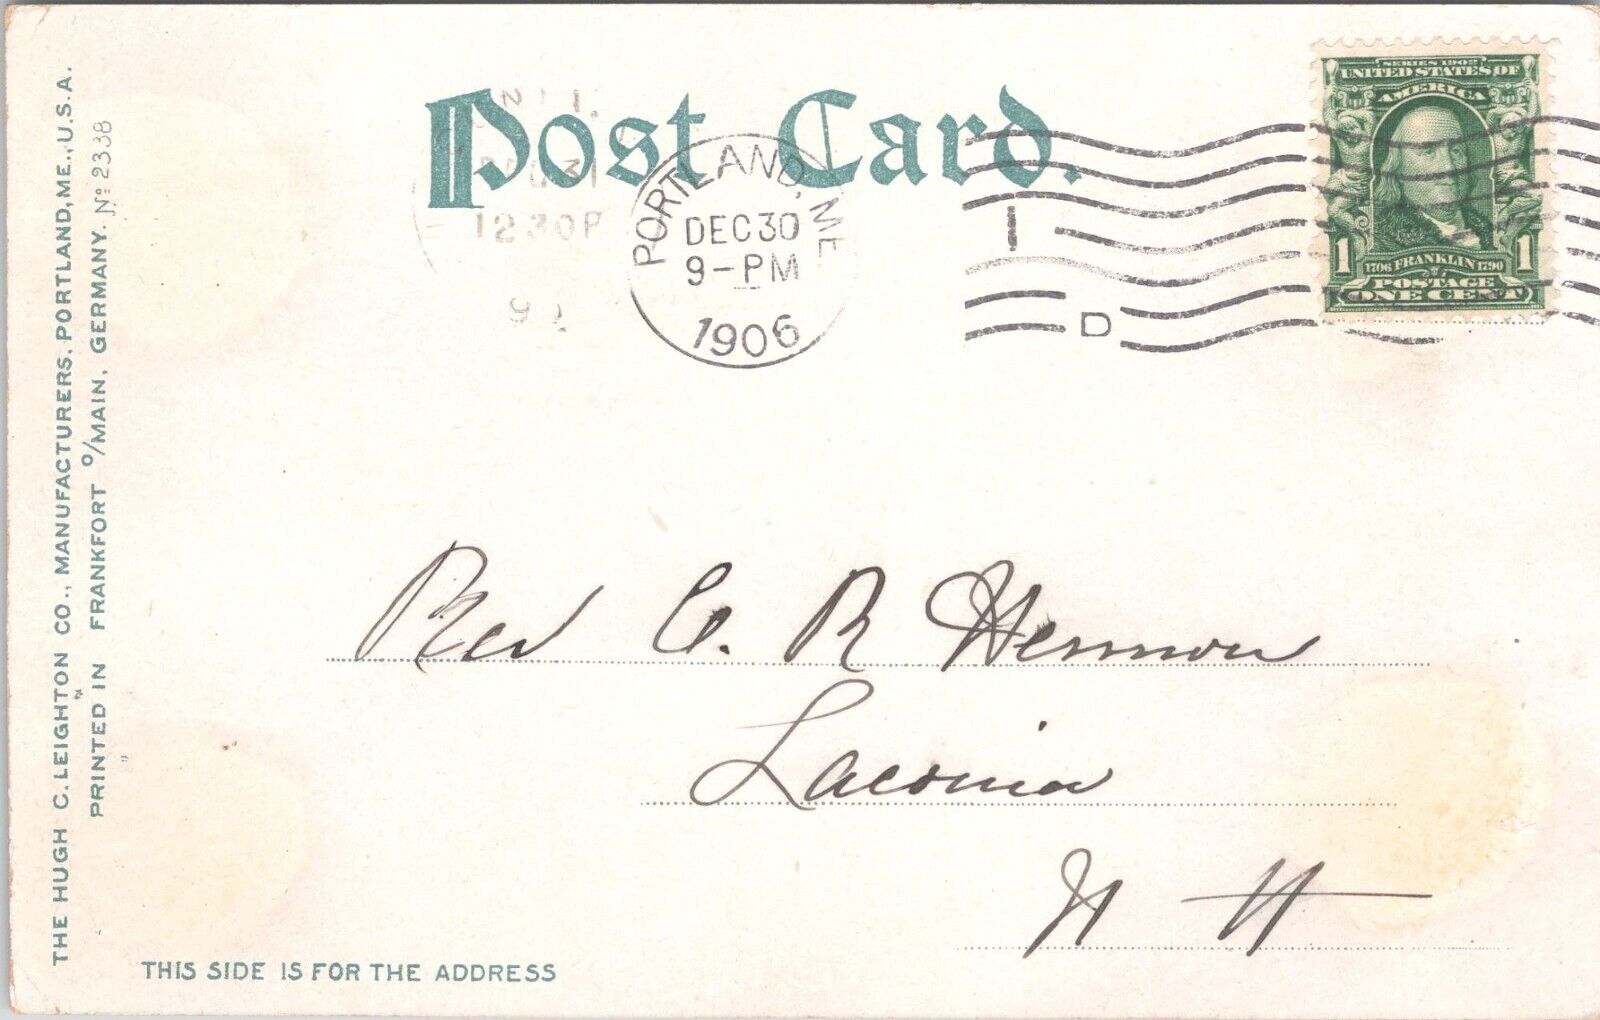 THE HUGH C. LEIGHTON CO., MANUFACTURERS, PORTLAND, ME., U.S.A.
PRINTED IN FRANKFORT O/MAIN, GERMANY. Nº 2338
Post Card.
DEC 31
12 30 P
PORTLAND, ME
DEC 30
9-PM
1906
1
D
SERIES 1902
UNITED STATES OF
AMERICA
1 1
1706 FRANKLIN 1790
POSTAGE
ONE CENT
Rev C. R Hermon
Laconia
N H
THIS SIDE IS FOR THE ADDRESS